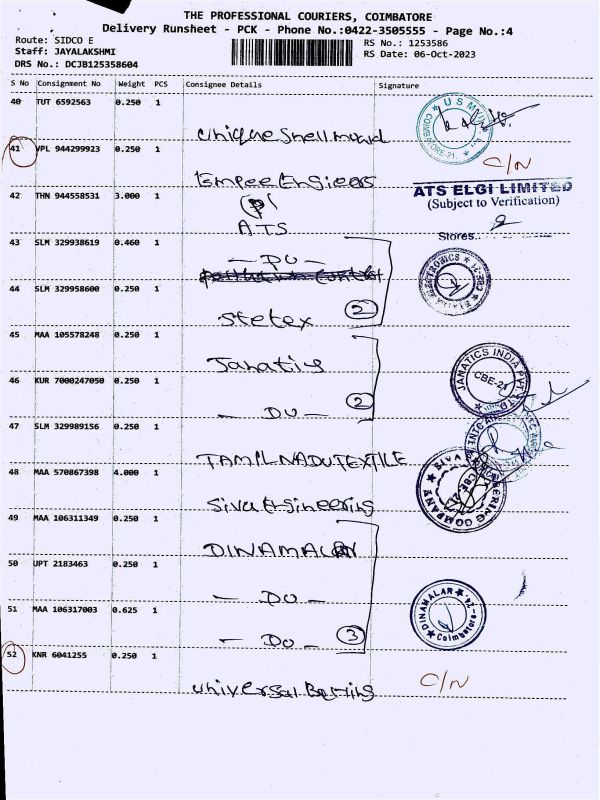 THE PROFESSIONAL COURIERS, COIMBATORE
Delivery Runsheet - PCK - Phone No.:0422-3505555 - Page No.:4
Route: SIDCO E
Staff: JAYALAKSHMI
DRS No.: DCJB125358604
RS No.: 1253586
RS Date: 06-Oct-2023
S No Consignment No Weight PCS Consignee Details Signature
40 TUT 6592563 0.250 1
USM
COIMBATORE-21.
unique Shell mould
41 VPL 944299923 0.250 1
C/N
Empee Engieers
42 THN 944558531 3.000 1
ATS ELGI LIMITED
(Subject to Verification)
Stores..
ATS
43 SLM 329938619 0.460 1
- DO -
ELECTRONICS
CBE-21
44 SLM 329958600 0.250 1
Stetex
2
45 MAA 105578248 0.250 1
Janatics
JANATICS INDIA PVT LTD
CBE-21
46 KUR 7000247050 0.250 1
- DO -
2
47 SLM 329989156 0.250 1
TAMIL NADU TEXTILE
48 MAA 570867398 4.000 1
Siva Engineering
SIVA ENGINEERING COMPANY
CBE-21
49 MAA 106311349 0.250 1
DINAMALAR
50 UPT 2183463 0.250 1
- DO -
51 MAA 106317003 0.625 1
- DO -
3
DINAMALAR
Coimbatore-
52 KNR 6041255 0.250 1
C/N
universal Bearing